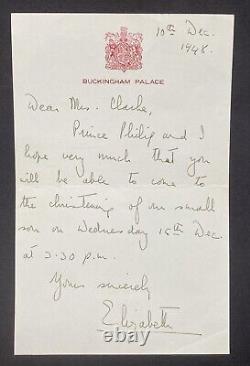 10th Dec.
1948.
BUCKINGHAM PALACE
Dear Mrs. Clarke,
Prince Philip and I
hope very much that you
will be able to come to
the christening of our small
son on Wednesday 15th Dec.
at 3.30 p.m.
Yours sincerely
Elizabeth